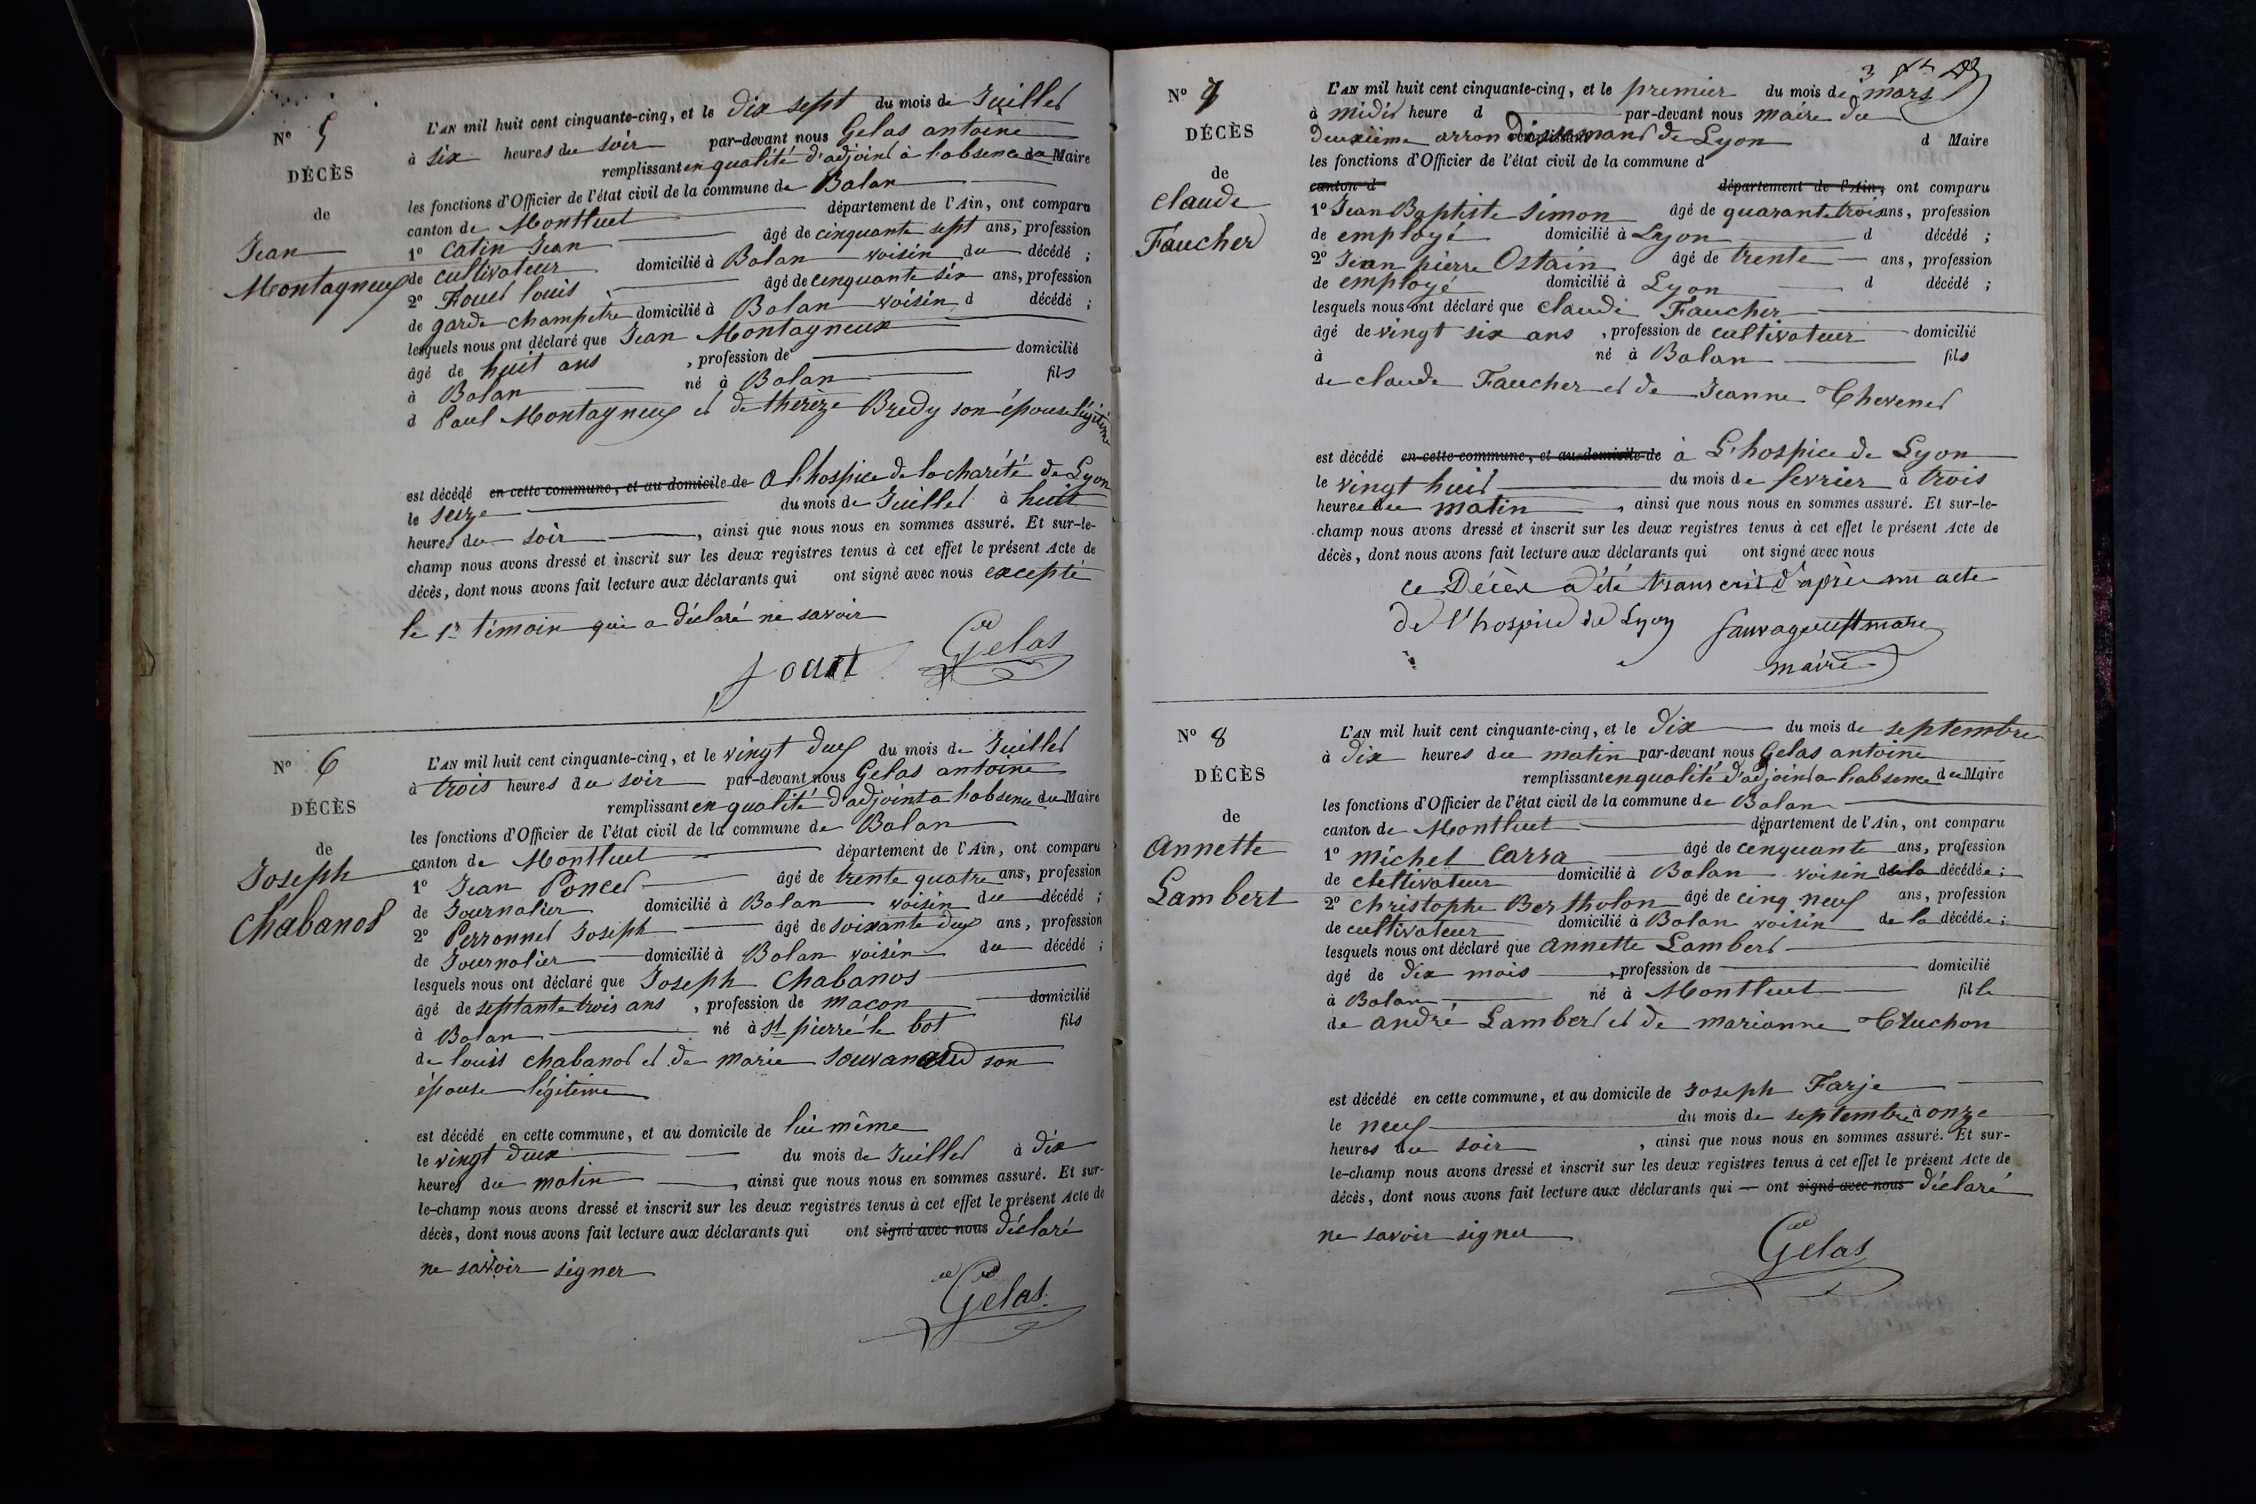 N° 5
DÉCÈS
de
Jean
Montagneux
L'AN mil huit cent cinquante-cinq, et le dix sept du mois de Juillet
à six heures du soir par-devant nous Gelas antoine
remplissant en qualité d'adjoint à l'absence du Maire
les fonctions d'Officier de l'état civil de la commune de Balan
canton de Montluel département de l'Ain, ont comparu
1° Catin Jean âgé de cinquante sept ans, profession
de cultivateur domicilié à Balan voisin du décédé ;
2° Fouet louis âgé de cinquante six ans, profession
de garde champetre domicilié à Balan voisin d décédé ;
lesquels nous ont déclaré que Jean Montagneux
âgé de huit ans , profession de domicilié
à Balan né à Balan fils
d Paul Montagneux et de thereze Bredy son épouse légitime
est décédé en cette commune, et au domicile de a l'hospice de la charité de Lyon
le seize du mois de Juillet à huit
heures du soir , ainsi que nous nous en sommes assuré. Et sur-le-
champ nous avons dressé et inscrit sur les deux registres tenus à cet effet le présent Acte de
décès, dont nous avons fait lecture aux déclarants qui ont signé avec nous excepté
le 1er témoin qui a déclaré ne savoir
fouet Gelas
N° 6
DÉCÈS
de
Joseph
Chabanos
L'AN mil huit cent cinquante-cinq, et le vingt deux du mois de Juillet
à trois heures du soir par-devant nous Gelas antoine
remplissant en qualité d'adjoint a l'absence du Maire
les fonctions d'Officier de l'état civil de la commune de Balan
canton de Montluel département de l'Ain, ont comparu
1° Jean Poncet âgé de trente quatre ans, profession
de Journalier domicilié à Balan voisin du décédé ;
2° Perronnet Joseph âgé de soixante deux ans, profession
de Journalier domicilié à Balan voisin du décédé ;
lesquels nous ont déclaré que Joseph Chabanos
âgé de septante trois ans , profession de macon domicilié
à Balan né à st pierre le bot fils
de louis chabanos et de marie son
épouse légitime
est décédé en cette commune, et au domicile de lui même
le vingt deux du mois de Juillet à dix
heures du matin , ainsi que nous nous en sommes assuré. Et sur-
le-champ nous avons dressé et inscrit sur les deux registres tenus à cet effet le présent Acte de
décès, dont nous avons fait lecture aux déclarants qui ont signé avec nous déclaré
ne savoir signer
Gelas
N° 7
DÉCÈS
de
claude
Faucher
L'AN mil huit cent cinquante-cinq, et le premier du mois de mars
à midi heure d par-devant nous maire du
deuxième arrondissemant de Lyon d Maire
les fonctions d'Officier de l'état civil de la commune d
canton d département de l'Ain, ont comparu
1° Jean Baptiste Simon âgé de quarante trois ans, profession
de employé domicilié à Lyon d décédé ;
2° Jean pierre Ostain âgé de trente ans, profession
de employé domicilié à Lyon d décédé ;
lesquels nous ont déclaré que claude Faucher
âgé de vingt six ans , profession de cultivateur domicilié
à né à Balan fils
de claude Faucher et de Jeanne Thevenet
est décédé en cette commune, et au domicile de à L'hospice de Lyon
le vingt huit du mois de fevrier à trois
heures du matin , ainsi que nous nous en sommes assuré. Et sur-le-
champ nous avons dressé et inscrit sur les deux registres tenus à cet effet le présent Acte de
décès, dont nous avons fait lecture aux déclarants qui ont signé avec nous
ce Décès a été transcrit d'après un acte
de l'hospice de Lyon
maire
N° 8
DÉCÈS
de
Annette
Lambert
L'AN mil huit cent cinquante-cinq, et le dix du mois de septembre
à dix heures du matin par-devant nous Gelas antoine
remplissant en qualité d'adjoint a l'absence du Maire
les fonctions d'Officier de l'état civil de la commune de Balan
canton de Montluel département de l'Ain, ont comparu
1° michel Carra âgé de cenquante ans, profession
de cultivateur domicilié à Balan voisin de la décédée ;
2° christophe Bertholon âgé de cinq neuf ans, profession
de cultivateur domicilié à Balan voisin de la décédée ;
lesquels nous ont déclaré que annette Lambert
âgé de dix mois , profession de domicilié
à Balan né à Montluel fille
de andré Lambert et de marianne Cluchon
est décédé en cette commune, et au domicile de Joseph Farje
le neuf du mois de septembre à onze
heures du soir , ainsi que nous nous en sommes assuré. Et sur-
le-champ nous avons dressé et inscrit sur les deux registres tenus à cet effet le présent Acte de
décès, dont nous avons fait lecture aux déclarants qui ont signé avec nous déclaré
ne savoir signer
Gelas